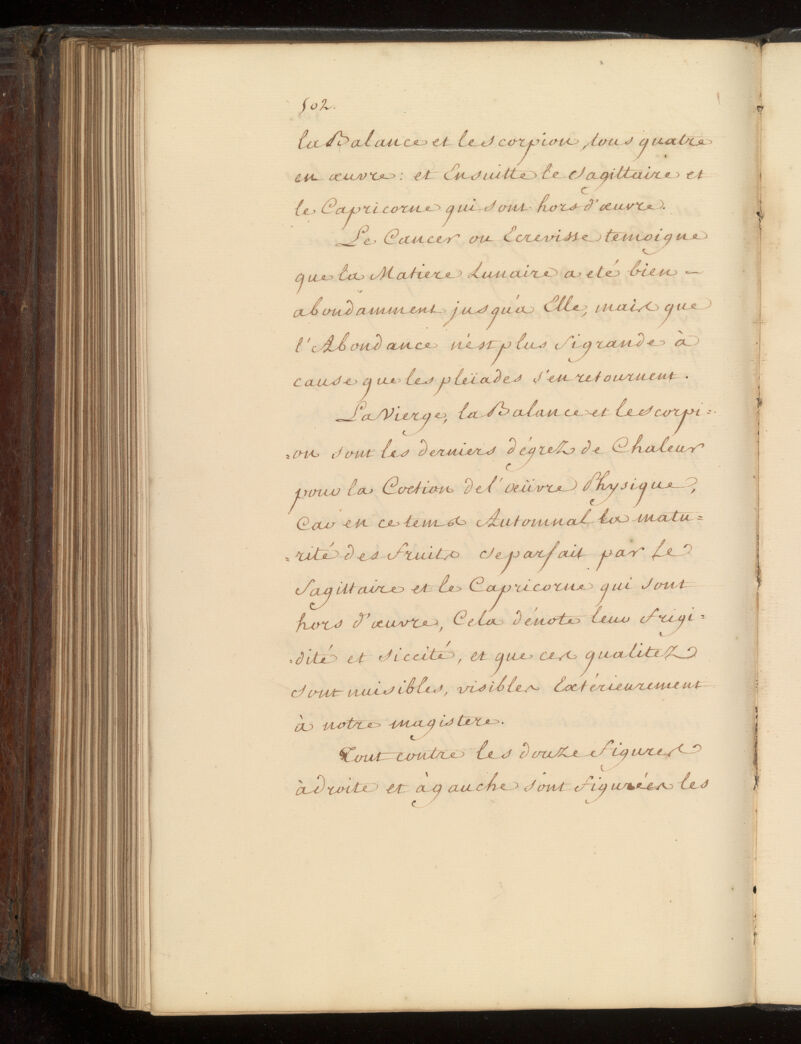 502.
la Balance et le Scorpion, tous quatre
en œuvre: et Ensuitte le Sagittaire et
le Capricorne qui sont hors d'œuvre.
Le Cancer ou Ecrevisse temoigne
que la Matiere Lunaire a eté bien –
abondamment jusqu'a Elle, mais que
l'Abondance n'est plus si grande à
cause que les pleïades s'en retournent.
La Vierge, la Balance et le Scorpi=
=on sont les derniers dégrez de Chaleur
pour la Coction de l'œüvre Physique,
Car en ce tems Automnal la matu=
=rité des Fruits se parfait par Le
Sagittaire et le Capricorne qui sont
hors d'œuvre, Cela dénote leur Frigi=
=dité et Siccité, et que ces qualitez
sont nuisibles, visibles Extérieurement
à notre magistere.
Tout contre les douze Figures
à droite et à gauche sont figurées les